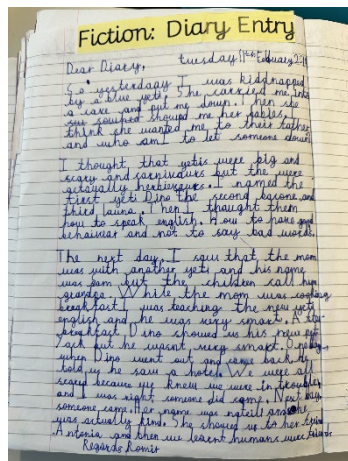 Fiction: Diary Entry
Dear Diary, Tuesday February
So yesterday I was kiddnapped
by a blue yeti. She carried me into
a cave and put me down. Then she
showed me her babies. I
think she wanted me to their father
and who am I to let someone down
I thought, that yetis were big and
scary and carnivaurs but the were
actually herbievaurs. I named the
first yeti Dino the second and
third launa. Then I thaught them
how to speak english. How to have good
behaivear and not to say bad words.
The next day, I saw that, the mom
was with another yeti and his name
was sam but the children call him
grandpa. While the mom was cooking
breakfast I was teaching the new yeti
english and he was very smart. At
breakfast Dino showed us his new
but he wasnt very smart.
when Dino went out and came back he
told us he saw a hotel. We were all
scared because we knew we were in trouble
and I was right someone did come. Next day
someone came. Her name was and she
was actually kind. She showed us to her
Antonia and then we learnt humans were
Regards Romir